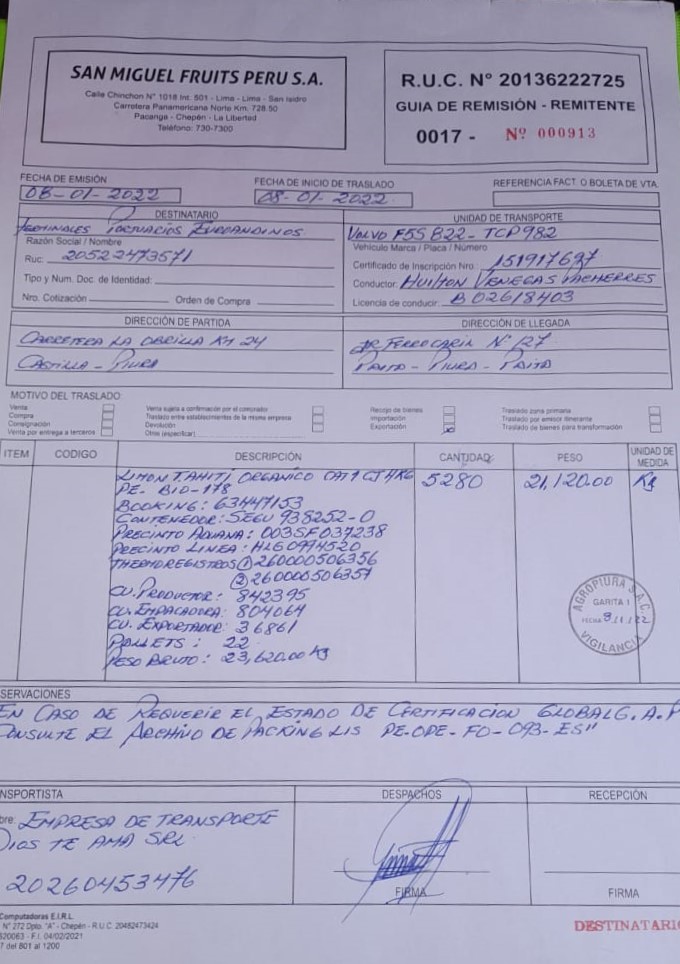 SAN MIGUEL FRUITS PERU S.A.
Calle Chinchon N° 1018 Int. 501 - Lima - Lima - San Isidro
Carretera Panamericana Norte Km. 728.50
Pacanga - Chepén - La Libertad
Teléfono: 730-7300
R.U.C. N° 20136222725
GUIA DE REMISIÓN - REMITENTE
0017 - Nº 000913
FECHA DE EMISIÓN
08-01-2022
FECHA DE INICIO DE TRASLADO
08-01-2022
REFERENCIA FACT. O BOLETA DE VTA.
DESTINATARIO
TERMINALES PORTUARIOS EUROANDINOS
Razón Social / Nombre
Ruc: 20522473571
Tipo y Num. Doc. de Identidad:
Nro. Cotización Orden de Compra
UNIDAD DE TRANSPORTE
VOLVO F5S 822 - TCP982
Vehículo Marca / Placa / Número
Certificado de Inscripción Nro. 151917627
Conductor: VENEGAS PACHERRES
Licencia de conducir: B 02618403
DIRECCIÓN DE PARTIDA
CARRETERA LA OBRILLA KM 24
CASTILLA - PIURA
DIRECCIÓN DE LLEGADA
JR FERROCARIN N° 127
PAITA - PIURA - PAITA
MOTIVO DEL TRASLADO:
Venta
Compra
Consignación
Venta por entrega a terceros
Venta sujeta a confirmación por el comprador
Traslado entre establecimientos de la misma empresa
Devolución
Otros (especificar)
Recojo de bienes
Importación
Exportación
Traslado zona primaria
Traslado por emisor itinerante
Traslado de bienes para transformación
ITEM CODIGO DESCRIPCIÓN CANTIDAD: PESO UNIDAD DE MEDIDA
LIMON TAHITI ORGANICO CAT1 CJ 4KG 5280 21,120.00 Kg
PE. BIO-178
BOOKING: 63447153
CONTENEDOR: SEGU 938252-0
PRECINTO ADUANA: 003SF037238
PRECINTO LINEA: HLG0994520
THERMOREGISTROS ① 260000506356
② 260000506357
CU. PRODUCTOR: 842395
CU. EMPACADORA: 804064
CU. EXPORTADOR: 36861
PALLETS: 22
PESO BRUTO: 23,620.00 Kg
AGROPIURA S.A.C.
GARITA 1
FECHA
VIGILANCIA
SERVACIONES
EN CASO DE REQUERIR EL ESTADO DE CERTIFICACION GLOBALG.A.P
CONSULTE EL ARCHIVO DE PACKING LIS PE-OPE-FO-093-ES"
NSPORTISTA
bre: EMPRESA DE TRANSPORTE
DIOS TE AMA SRL
20260453476
DESPACHOS
FIRMA
RECEPCIÓN
FIRMA
Computadoras E.I.R.L
N° 272 Dpto. "A" - Chepén - R.U.C. 20482473424
820063 - F.I. 04/02/2021
7 del 801 al 1200
DESTINATARIO